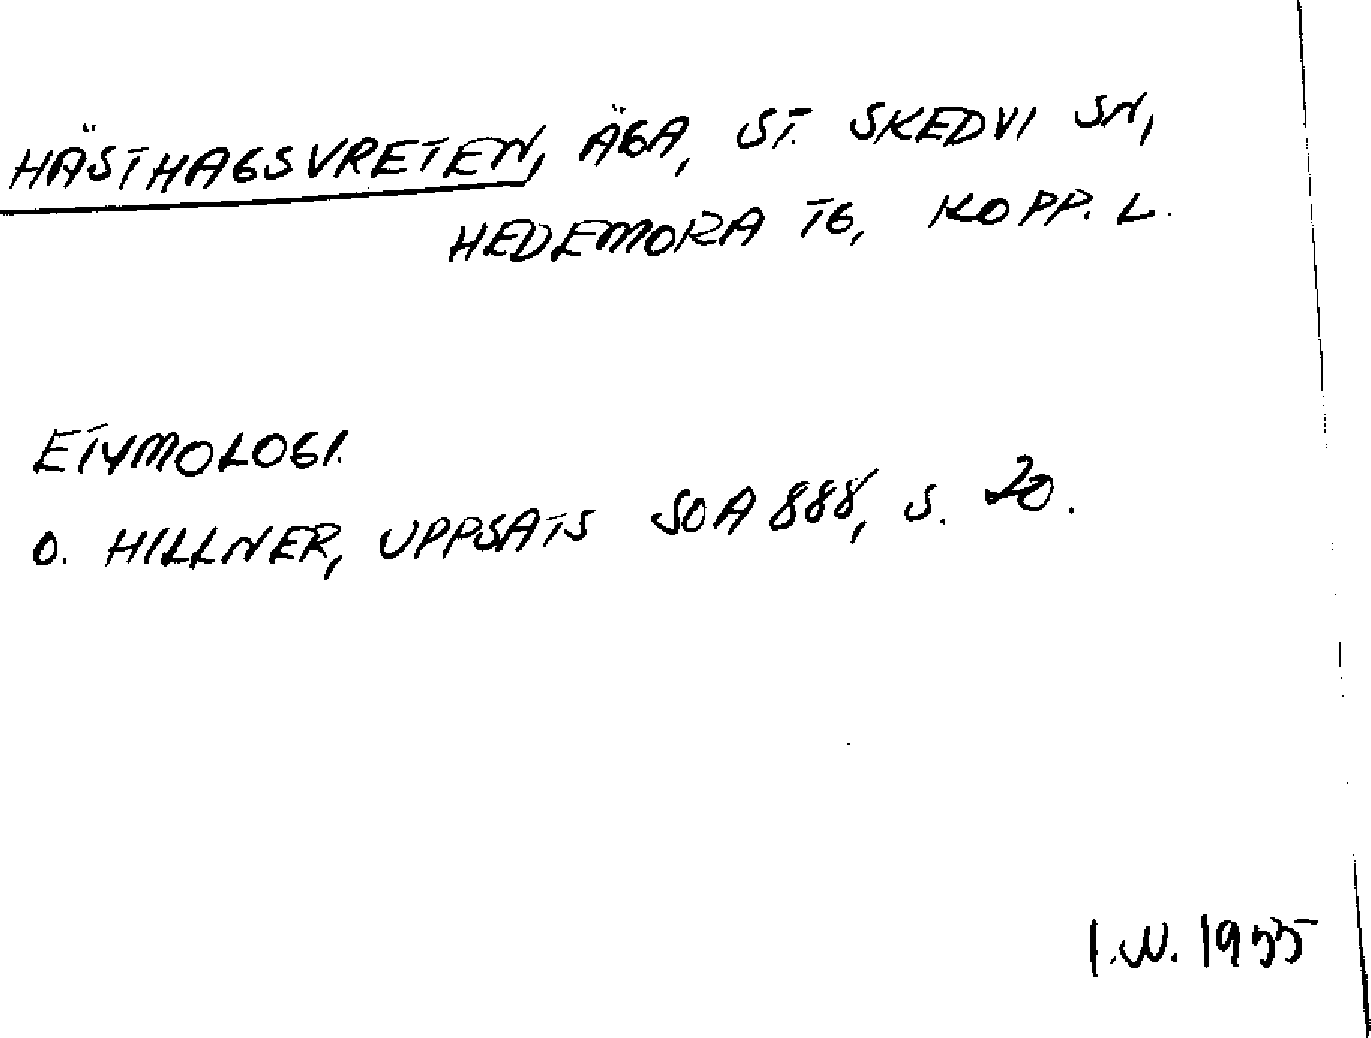 HÄSTHAGSVRETEN, ÄGA, ST. SKEDVI SN,
HEDEMORA TG, KOPP. L.
ETYMOLOGI.
O. HILLNER, UPPSATS SOA 888, S. 20.
I.W. 1955